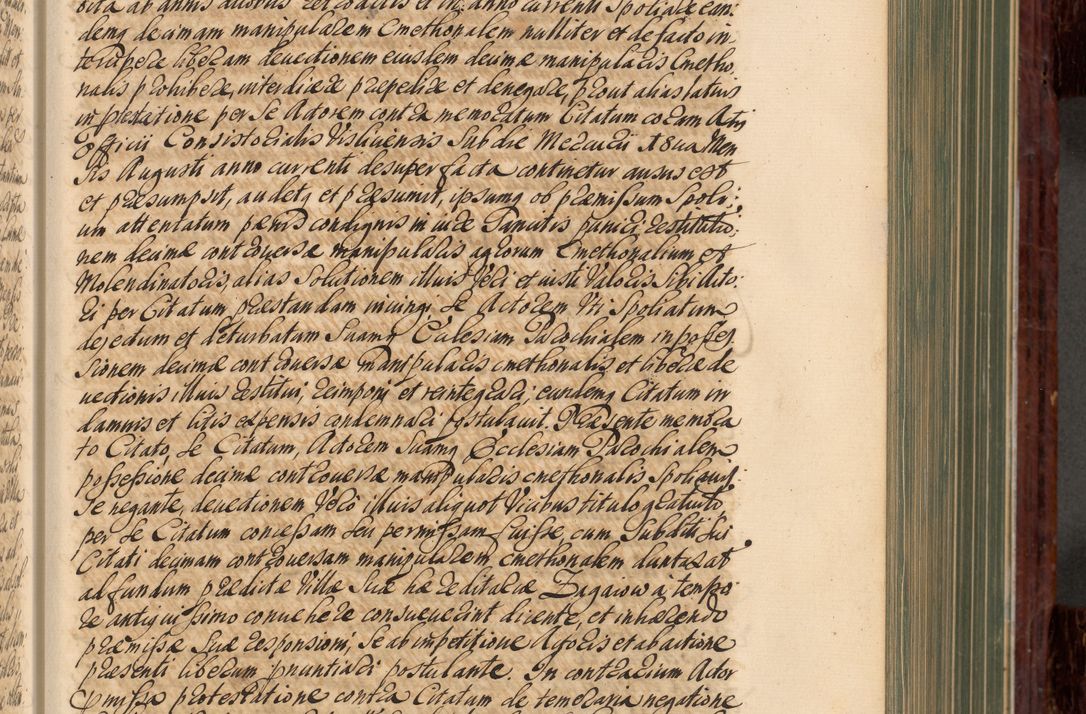 bita ab annis duobus retroactis et in anno currenti Spoliare ean:
demq decimam manipularem Cmethonalem nulliter et de facto in
toto percipere liberam devectionem eiusdem decimæ manipularis Cmetho
nalis prohibere, interdicere præpedire et denegare, prout alias latius
in protestatione per se Actorem contra memoratum Citatum coram Actis
Officii Consistorialis Visliciensis Sab die Mercurii 18va Men
sis Augusti anno currenti desuper facta continetur ausus est
et præsumpsit, audetq et præsumit, ipsumq ob præmissum Spoli:
um attentatum pænis condignis in iure Sancitis puniri, restitutio:
nem decimæ controversæ manipularis agrorum Cmethonalium et
Molendinatoris, alias Solutionem illius Veri et iusti Valoris Sibi Acto:
ri per Citatum præstandam iniungi, se Actorem Uti Spoliatum
dejectum et deturbatum Suamq Ecclesiam Parochialem in posses
sionem decimæ controversæ manipularis cmethonalis et liberæ de
vectionis illius restitui, reimponi et reintegrari, eundemq Citatum in
damnis et litis expensis condemnari postulavit. Præsente memora
to Citato, se Citatum, Actorem Suamq Ecclesiam Parochialem
possessione decimæ controversæ manipularis cmethonalis Spoliavis
se negante, devectionem Vero illius aliquot Vicibus titulo gratuito
per se Citatum concessam seu permissam fuisse, cum Subditi sui
Citati decimam controversam manipularem cmethonalem duntaxat
ad fundum prædictæ Villæ Suæ hæreditariæ Zagaiow à tempo:
re antiquissimo convehere consueverint dicente, et inhærendo
præmissæ Suæ responsioni, se ab impetitione Actoris et ab actione
præsenti liberum pronuntiari postulante. In contrarium Actor
præmissa protestatione contra Citatum de temeraria negatione